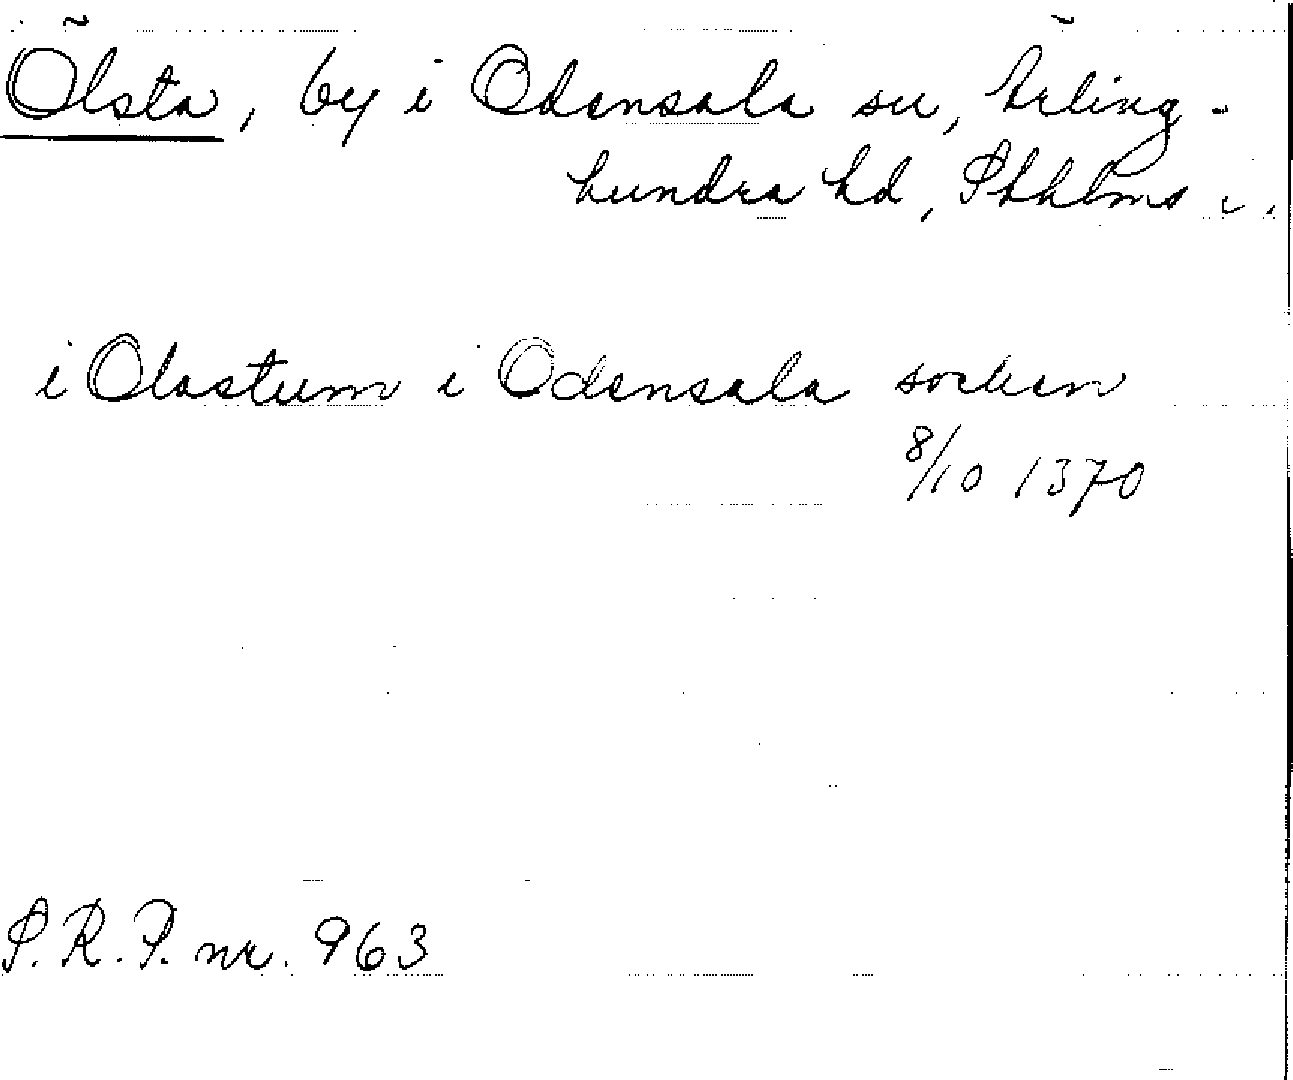 Õlsta, by i Odensala sn, Ärling-
hundra hd, Sthlms l.
i Olastum i Odensala socken
8/10 1370
S.R.P. nr. 963